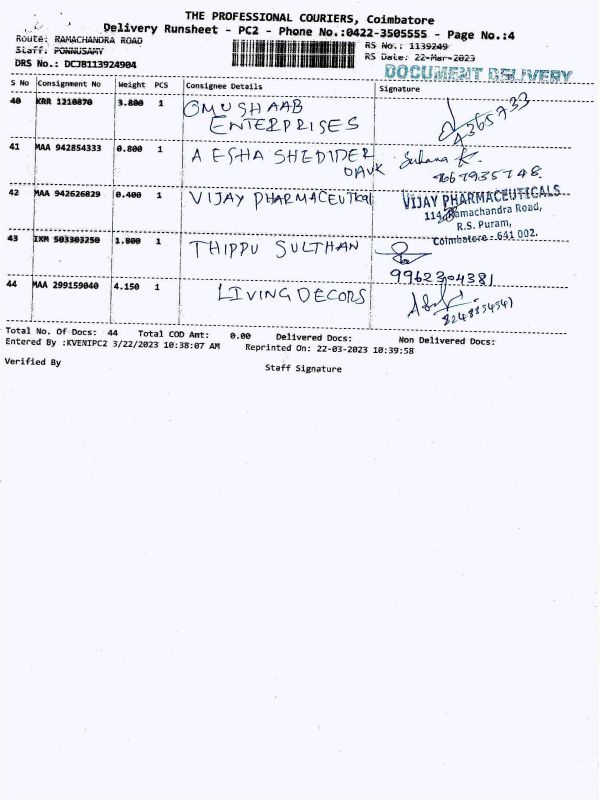 THE PROFESSIONAL COURIERS, Coimbatore
Delivery Runsheet - PC2 - Phone No.:0422-3505555 - Page No.:4
Route: RAMACHANDRA ROAD
RS No.: 1139249
Staff: PONNUSAMY
RS Date: 22-Mar-2023
DRS No.: DCJB113924904
DOCUMENT DELIVERY
S No Consignment No Weight PCS Consignee Details Signature
40 KRR 1210870 3.800 1 OMUSHAAB
ENTERPRISES
41 MAA 942854333 0.800 1 AESHA SHEDIDER
Suhana K.
42 MAA 942626829 0.400 1 VIJAY PHARMACEUTICAL
VIJAY PHARMACEUTICALS
114, Ramachandra Road,
R.S. Puram,
Coimbatore - 641 002.
43 IXM 503303250 1.800 1 THIPPU SULTHAN
9962304381
44 MAA 299159040 4.150 1 LIVING DECORS
Total No. Of Docs: 44 Total COD Amt: 0.00 Delivered Docs: Non Delivered Docs:
Entered By :KVENIPC2 3/22/2023 10:38:07 AM Reprinted On: 22-03-2023 10:39:58
Verified By
Staff Signature